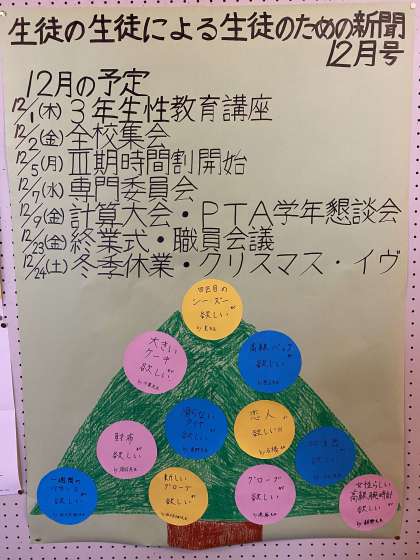 生徒の生徒による生徒のための新聞
12月号
12月の予定
12/1(木)3年生性教育講座
12/2(金)全校集会
12/5(月)Ⅲ期時間割開始
12/7(水)専門委員会
12/9(金)計算大会・PTA学年懇談会
12/23(金)終業式・職員会議
12/24(土)冬季休業・クリスマス・イヴ
四匹目の
シーズーが
欲しい
大きい
ケーキが
欲しい
高級バッグが
欲しい
滑らない
タイヤが
欲しい
恋人が
欲しい!!
財布が
欲しい
欲しい
一週間の
が
欲しい
新しい
グローブが
欲しい
グローブが
欲しい
女性らしい
高級腕時計が
欲しい